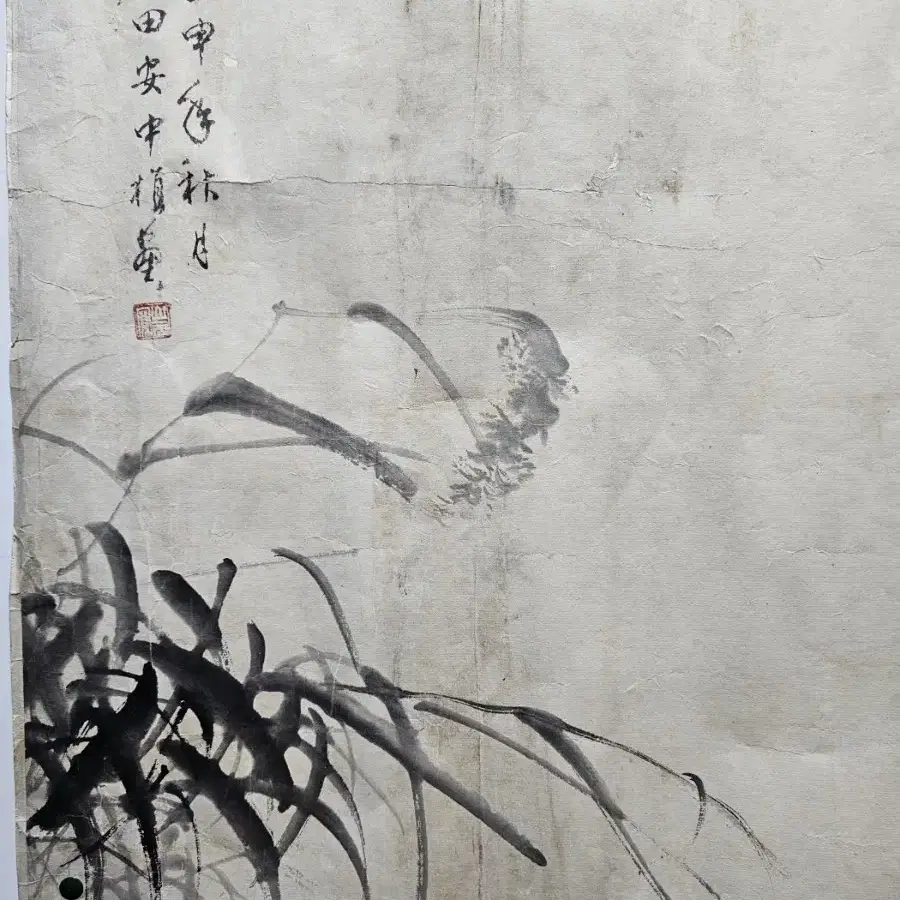 申年秋月
田安中植